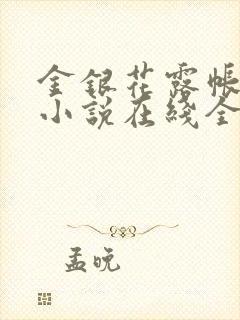 金银花露帐
小说在线全
孟晚